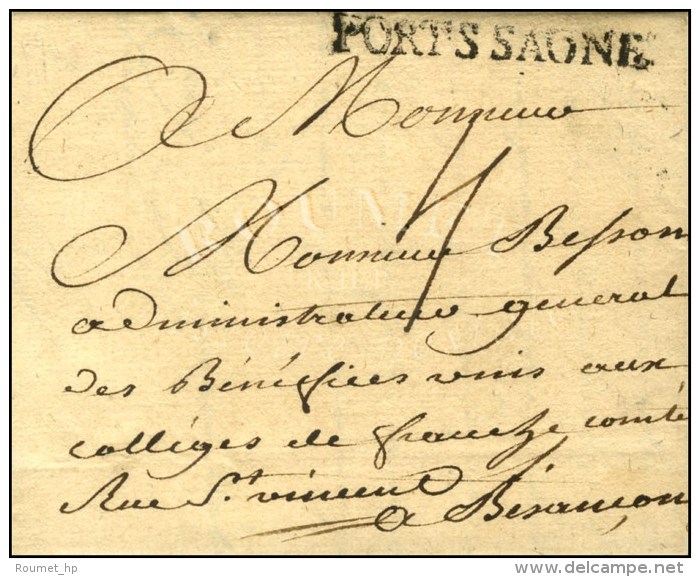 PORTS SAONE
A Monsieur
Monsieur Besson
administrateur general
des Bénéfices unis aux
collèges de franche comté
Rue St. vincent
a Besançon
Roumet_hp
delcampe.net